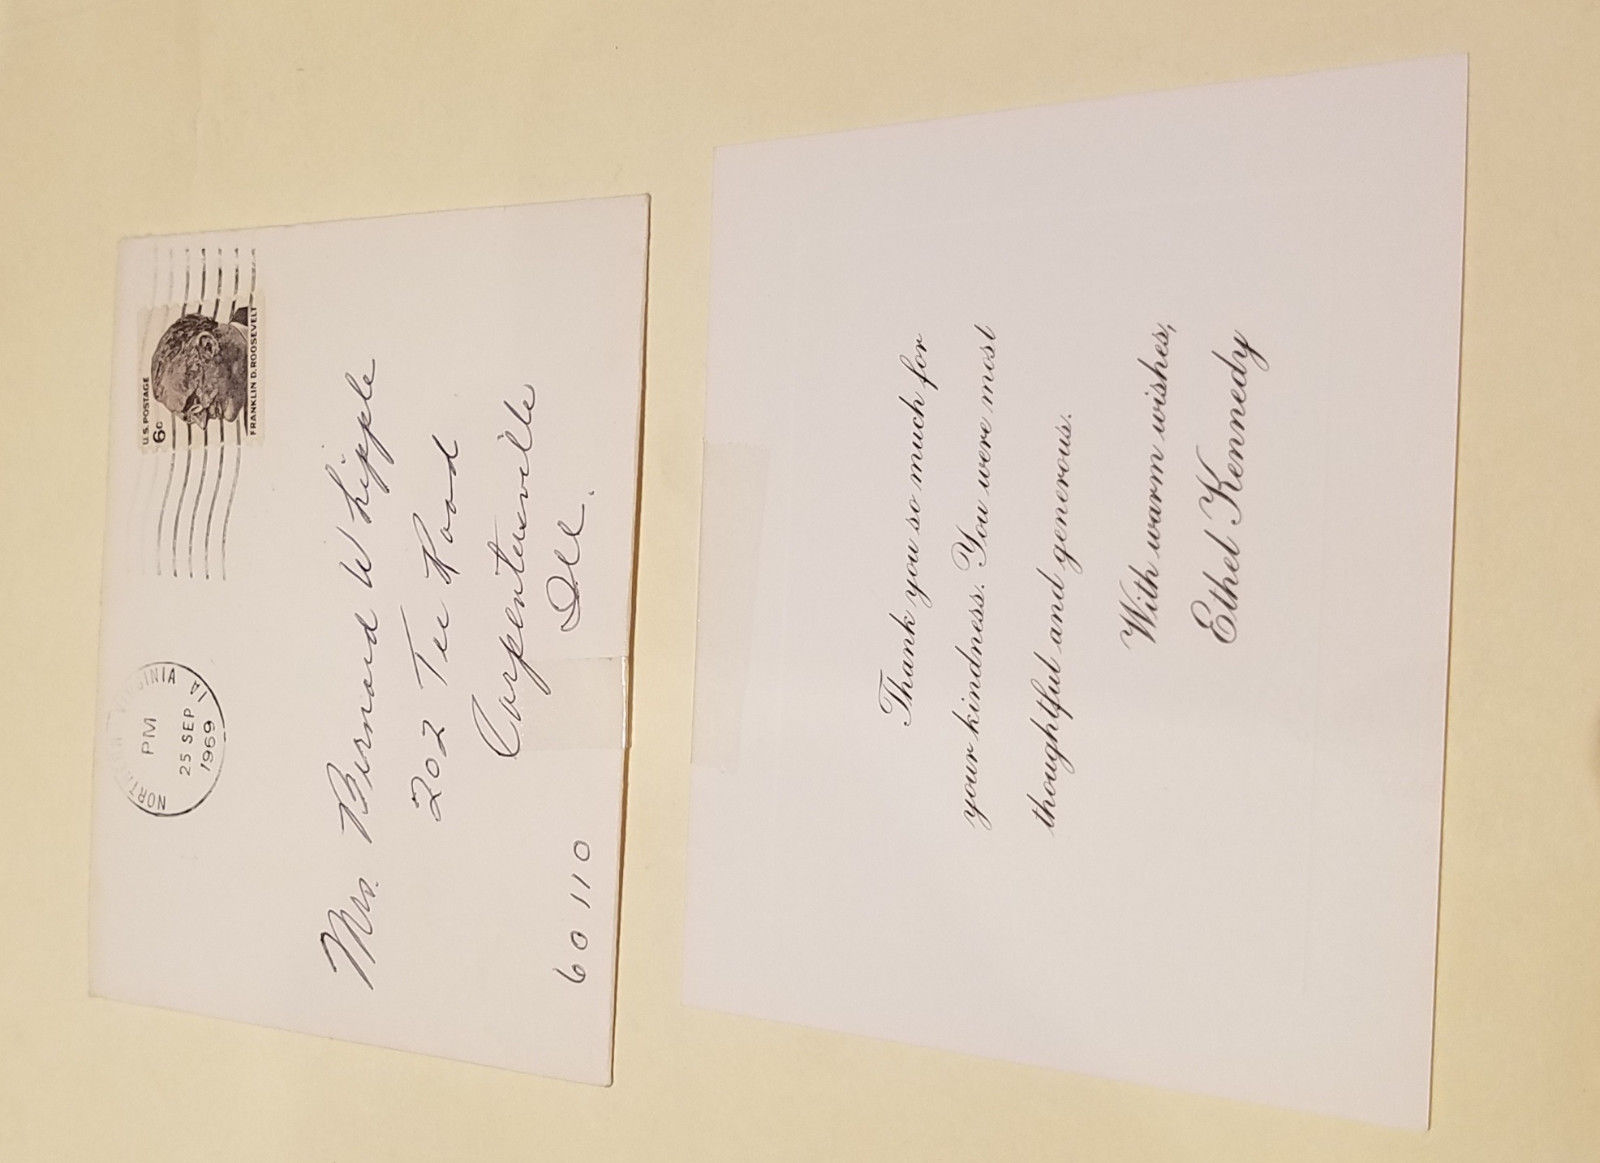 U.S. POSTAGE
6c
FRANKLIN D. ROOSEVELT
VIRGINIA
PM
25 SEP
1969
Mrs. Bernard Whipple
202 Tee Road
Carpentersville
Ill.
60110
Thank you so much for
your kindness. You were most
thoughtful and generous.
With warm wishes,
Ethel Kennedy